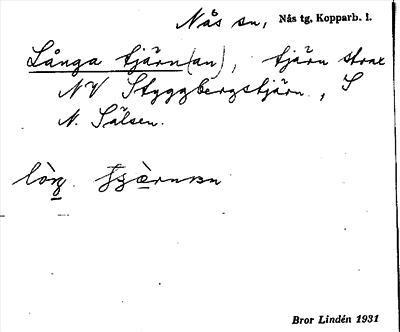 Nås sn, Nås tg, Kopparb. l.
Långa tjärn(an), tjärn strax
NV Styggbergstjärn, S
N. Sälsen.
Bror Lindén 1931